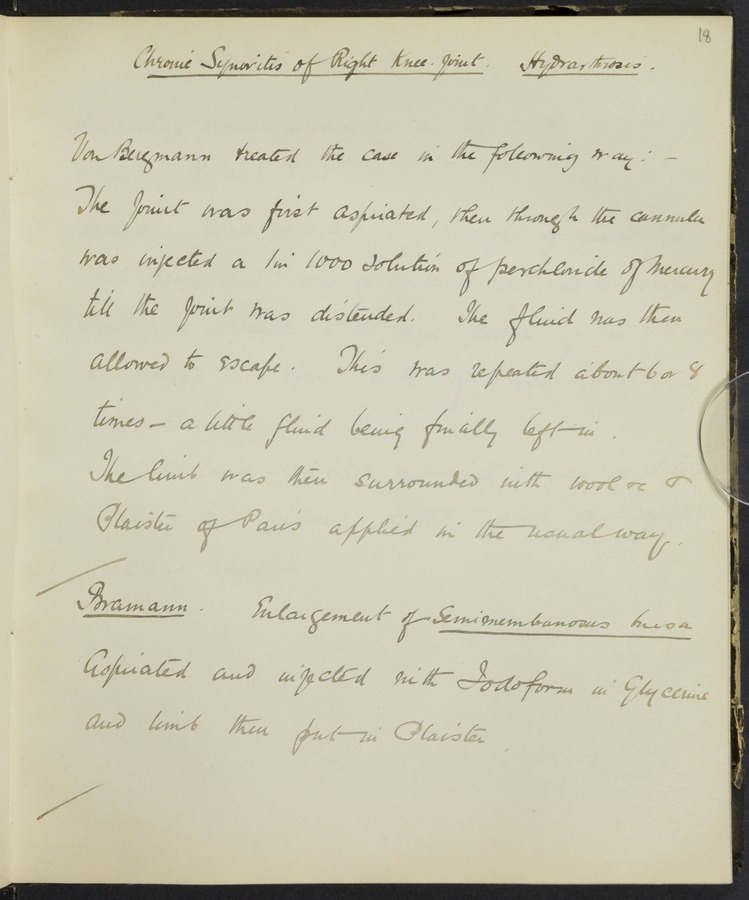 18
Chronic Synovitis of Right Knee-Joint. Hydrarthrosis.
Von Bergmann treated the case in the following way: -
The Joint was first aspirated, then through the cannula
was injected a 1 in 1000 solution of perchloride of Mercury
till the Joint was distended. The fluid was then
allowed to escape. This was repeated about 6 or 8
times - a little fluid being finally left in.
The limb was then surrounded with wool &
Plaister of Paris applied in the usual way.
Bramann. Enlargement of Semimembranosus bursa
Aspirated and injected with Iodoform in Glycerine
and limb then put in Plaister.